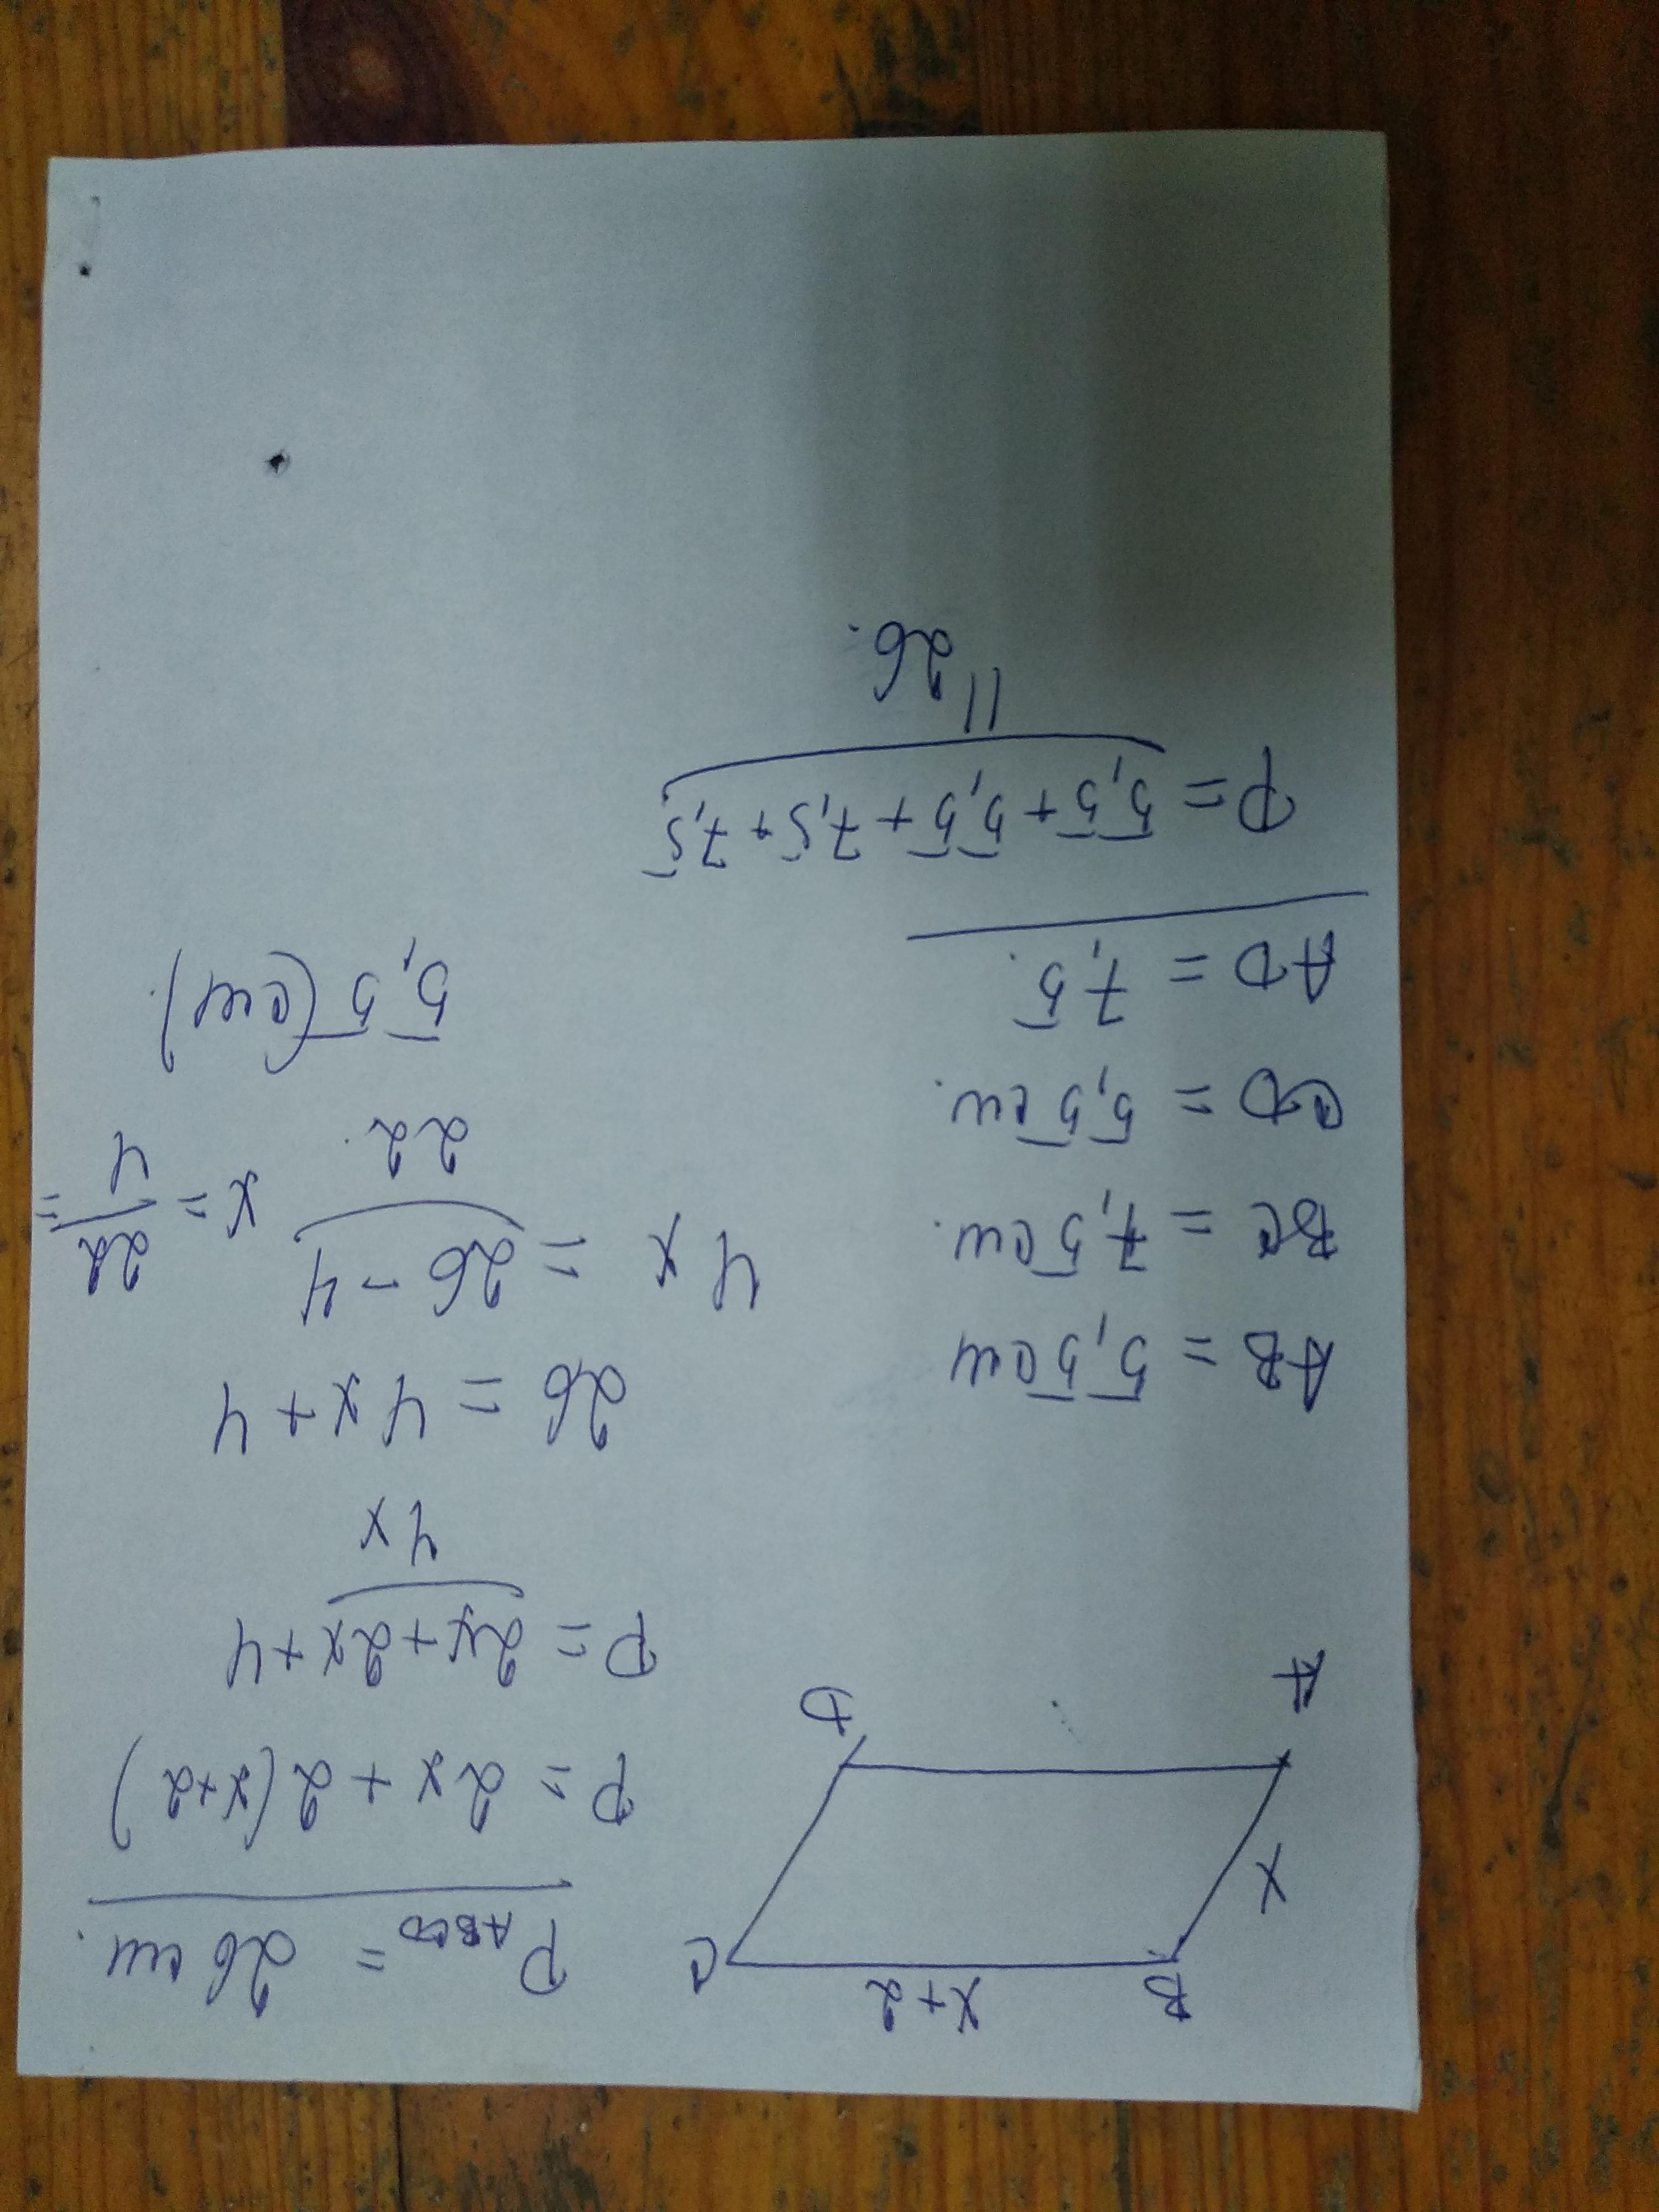 B x+2 C
x
A D
P ABCD = 26 см.
P = 2x + 2(x+2)
P = 2x + 2x + 4
4x
26 = 4x + 4
4x = 26 - 4 x = 22/4 =
22.
5,5 (см).
AB = 5,5 см
BC = 7,5 см.
CD = 5,5 см.
AD = 7,5.
P = 5,5 + 5,5 + 7,5 + 7,5
||
26.